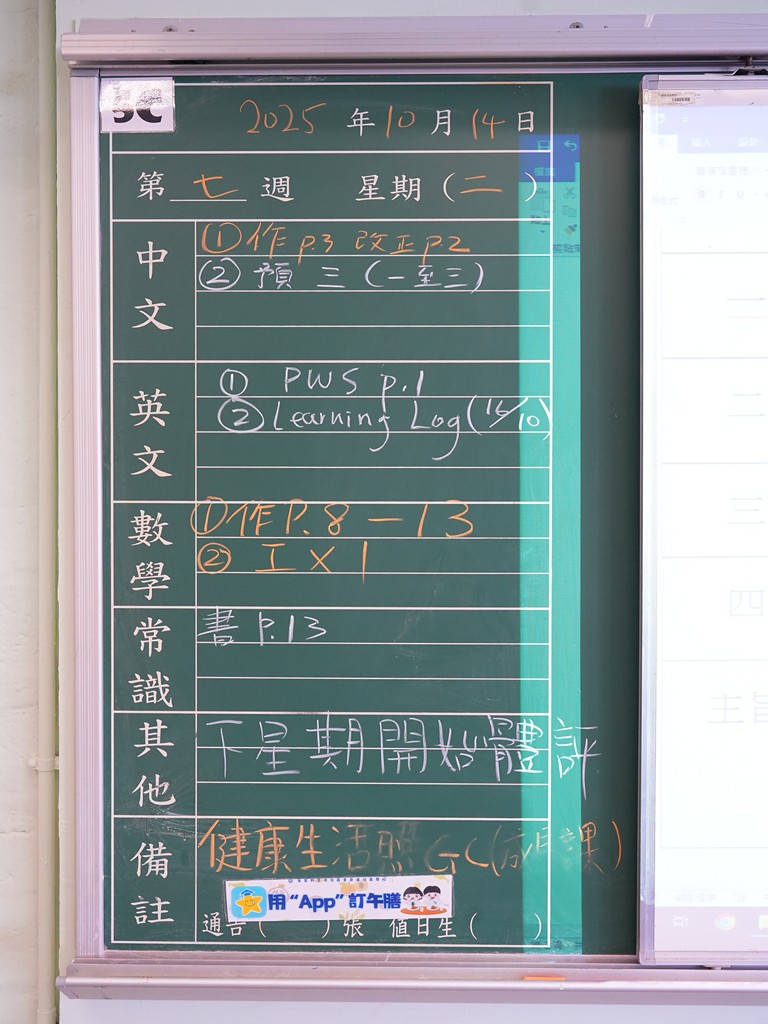 5C
2025 年 10 月 14 日
第 七 週 星期（二）
中文
①作 p.3 改正 p2
② 預 三 (一至三)
英文
① PWS p.1
② Learning Log (16/10)
數學
①作 P.8 — 13
② 工 X 1
常識
書 P.13
其他
下星期開始體評
備註
健康生活照 GC(成長課)
用 “App” 訂午膳
通告（ ）張 值日生（ ）
一
二
三
四